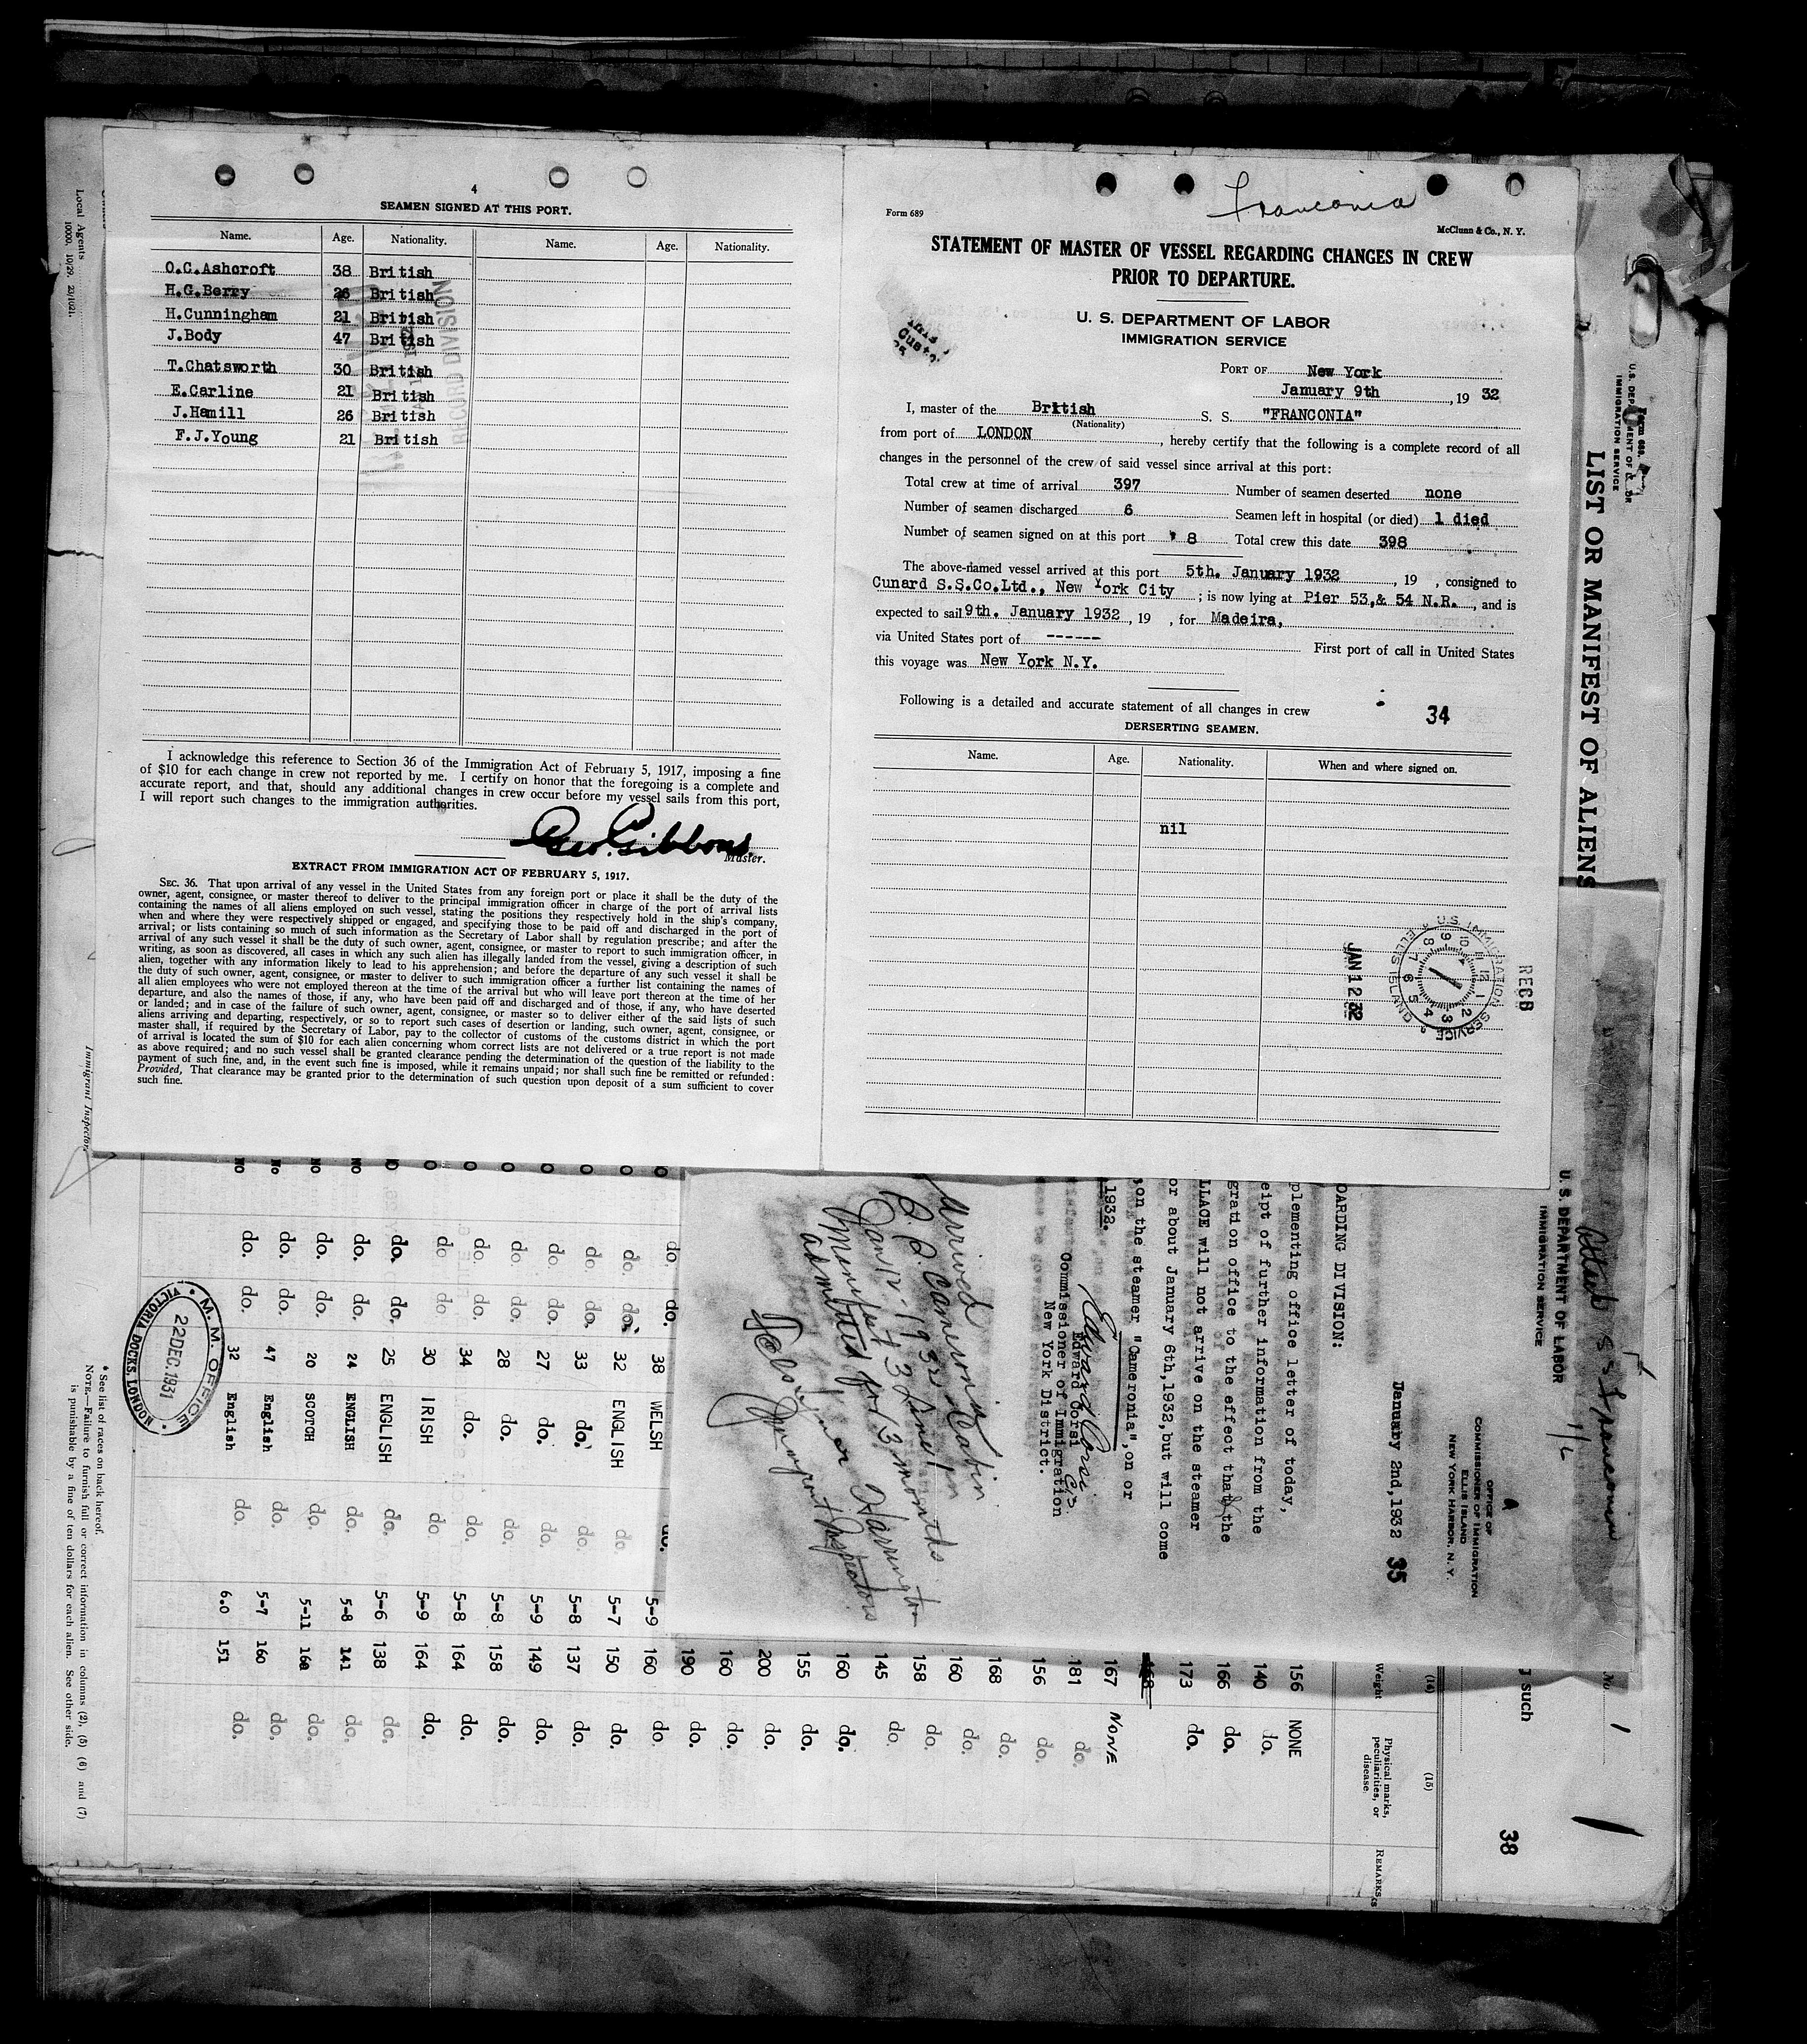 4
SEAMEN SIGNED AT THIS PORT.
Name. Age. Nationality. Name. Age. Nationality.
O.C.Ashcroft 38 British
H.G.Berry 26 British
H.Cunningham 21 British
J.Body 47 British
T.Chatsworth 30 British
E.Carline 21 British
J.Hamill 26 British
F.J.Young 21 British
RECORD DIVISION
I acknowledge this reference to Section 36 of the Immigration Act of February 5, 1917, imposing a fine
of $10 for each change in crew not reported by me. I certify on honor that the foregoing is a complete and
accurate report, and that, should any additional changes in crew occur before my vessel sails from this port,
I will report such changes to the immigration authorities.
Geo. Gibbons
Master.
EXTRACT FROM IMMIGRATION ACT OF FEBRUARY 5, 1917.
SEC. 36. That upon arrival of any vessel in the United States from any foreign port or place it shall be the duty of the
owner, agent, consignee, or master thereof to deliver to the principal immigration officer in charge of the port of arrival lists
containing the names of all aliens employed on such vessel, stating the positions they respectively hold in the ship's company,
when and where they were respectively shipped or engaged, and specifying those to be paid off and discharged in the port of
arrival; or lists containing so much of such information as the Secretary of Labor shall by regulation prescribe; and after the
arrival of any such vessel it shall be the duty of such owner, agent, consignee, or master to report to such immigration officer, in
writing, as soon as discovered, all cases in which any such alien has illegally landed from the vessel, giving a description of such
alien, together with any information likely to lead to his apprehension; and before the departure of any such vessel it shall be
the duty of such owner, agent, consignee, or master to deliver to such immigration officer a further list containing the names of
all alien employees who were not employed thereon at the time of the arrival but who will leave port thereon at the time of her
departure, and also the names of those, if any, who have been paid off and discharged and of those, if any, who have deserted
or landed; and in case of the failure of such owner, agent, consignee, or master so to deliver either of the said lists of such
aliens arriving and departing, respectively, or so to report such cases of desertion or landing, such owner, agent, consignee, or
master shall, if required by the Secretary of Labor, pay to the collector of customs of the customs district in which the port
of arrival is located the sum of $10 for each alien concerning whom correct lists are not delivered or a true report is not made
as above required; and no such vessel shall be granted clearance pending the determination of the question of the liability to the
payment of such fine, and, in the event such fine is imposed, while it remains unpaid; nor shall such fine be remitted or refunded:
Provided, That clearance may be granted prior to the determination of such question upon deposit of a sum sufficient to cover
such fine.
Franconia
Form 689
McClunn & Co., N. Y.
STATEMENT OF MASTER OF VESSEL REGARDING CHANGES IN CREW
PRIOR TO DEPARTURE.
U. S. DEPARTMENT OF LABOR
IMMIGRATION SERVICE
PORT OF New York
January 9th, 19 32
I, master of the British S. S. "FRANCONIA"
(Nationality)
from port of LONDON, hereby certify that the following is a complete record of all
changes in the personnel of the crew of said vessel since arrival at this port:
Total crew at time of arrival 397 Number of seamen deserted none
Number of seamen discharged 6 Seamen left in hospital (or died) 1 died
Number of seamen signed on at this port 8 Total crew this date 398
The above-named vessel arrived at this port 5th. January 1932, 19 , consigned to
Cunard S.S.Co.Ltd., New York City ; is now lying at Pier 53,& 54 N.R. , and is
expected to sail 9th. January 1932 , 19 , for Madeira,
via United States port of ------ First port of call in United States
this voyage was New York N.Y.
Following is a detailed and accurate statement of all changes in crew
34
DERSERTING SEAMEN.
Name. Age. Nationality. When and where signed on.
nil
U.S. IMMIGRATION SERVICE ELLIS ISLAND
JAN 12 32
RECD
Local Agents
10000. 10/29.
Immigrant Inspector.
Form 689.
U.S. DEPARTMENT OF LABOR
IMMIGRATION SERVICE
LIST OR MANIFEST OF ALIENS
S S Franconia
1/6
U. S. DEPARTMENT OF LABOR
IMMIGRATION SERVICE
OFFICE OF
COMMISSIONER OF IMMIGRATION
ELLIS ISLAND
NEW YORK HARBOR, N. Y.
January 2nd,1932 35
OARDING DIVISION:
plementing office letter of today,
eipt of further information from the
gration office to the effect that the
LLACE will not arrive on the steamer
or about January 6th,1932,but will come
on the steamer "Cameronia",on or
1932.
Edward Corsi
Edward Corsi
Commissioner of Immigration
New York District.
Arrived
S.S. Cameronia Cabin
Jan 12-1932 on
Manifest 3 Line 1
admitted for 3 months
Harrington
Immigrant Inspector
No. 1
such
38
(14) (15)
Weight Physical marks, peculiarities, or disease REMARKS
156 NONE
140 do.
166 do.
173 do.
167 NONE
181 do.
156 do.
168 do.
160 do.
158 do.
145 do.
160 do.
155 do.
200 do.
160 do.
190 do.
do. do. 38 WELSH do. 5-9 160 do.
do. do. 32 ENGLISH do. 5-7 150 do.
do. do. 33 do. do. 5-8 137 do.
do. do. 27 do. do. 5-9 149 do.
do. do. 28 do. do. 5-8 158 do.
do. do. 34 do. do. 5-8 164 do.
do do 30 IRISH do. 5-9 164 do.
do. do. 25 ENGLISH do. 5-6 138 do.
NO do. do. 24 ENGLISH do. 5-8 141 do.
NO do. do. 20 SCOTCH do. 5-11 168 do.
No do. do. 47 English do. 5-7 160 do.
NO do. do. 32 English do. 6.0 151 do.
M. M. OFFICE
22 DEC. 1931
VICTORIA DOCKS, LONDON
* See list of races on back hereof.
NOTE.—Failure to furnish full or correct information in columns (2), (5) (6) and (7)
is punishable by a fine of ten dollars for each alien. See other side.